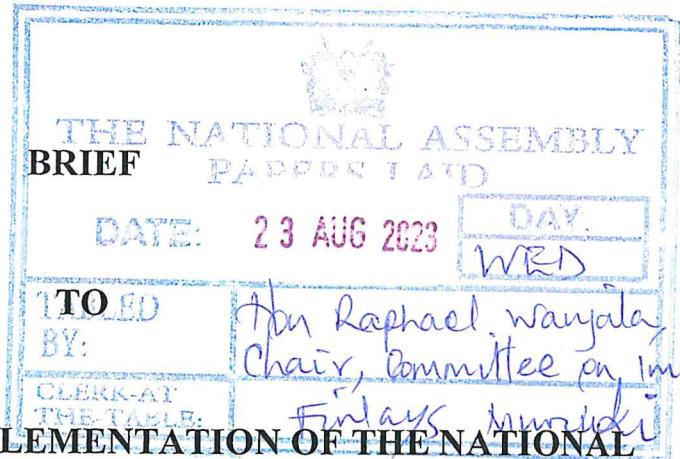 THE NATIONAL ASSEMBLY
BRIEF
PAPERS LAID
DATE: 23 AUG 2023
DAY.
WED
TO
TABLED
BY:
Hon Raphael Wanjala,
Chair, Committee on Im
CLERK-AT
THE-TABLE:
Finlays Muriuki
LEMENTATION OF THE NATIONAL